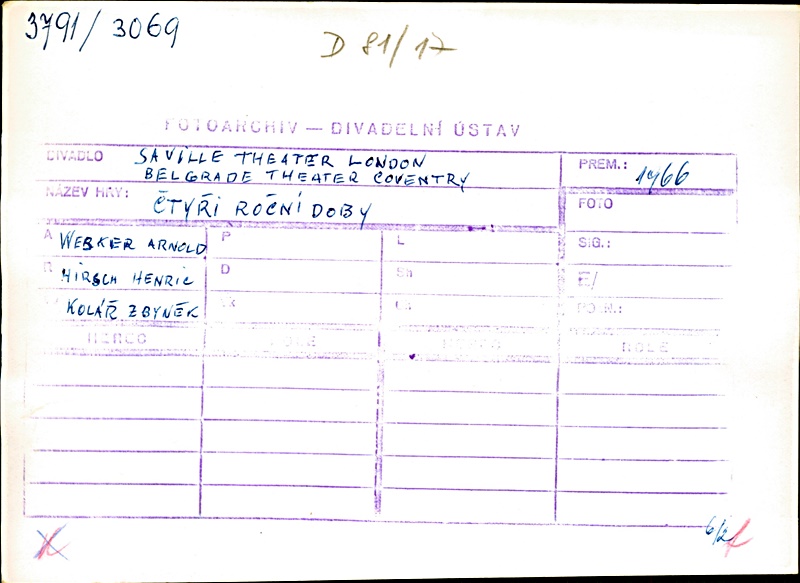 3791/3069
D 81/17
FOTOARCHIV — DIVADELNÍ ÚSTAV
DIVADLO SAVILLE THEATER LONDON
BELGRADE THEATER COVENTRY
PREM.: 1966
NÁZEV HRY: ČTYŘI ROČNÍ DOBY
FOTO
A WESKER ARNOLD P L SIG.:
R HIRSCH HENRIC D Sh E/
KOLÁŘ ZBYNĚK
HEREC ROLE HEREC ROLE
6/2